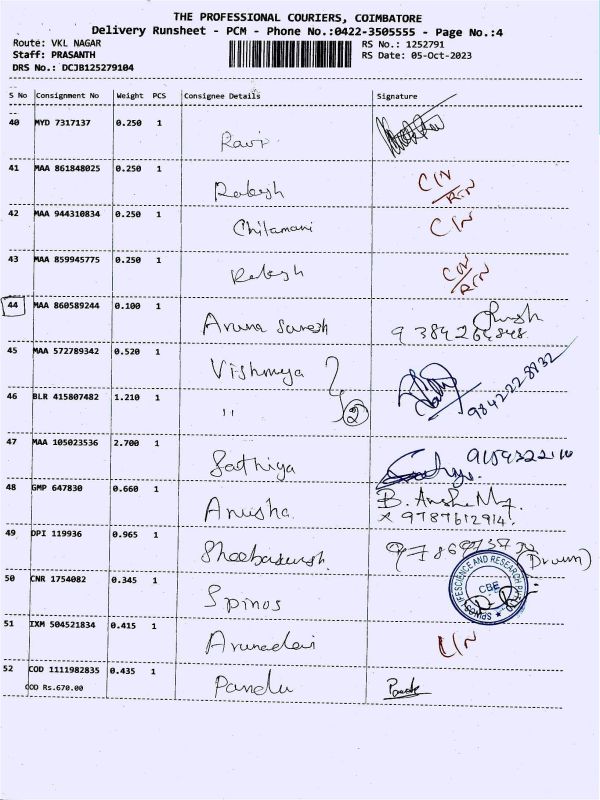 THE PROFESSIONAL COURIERS, COIMBATORE
Delivery Runsheet - PCM - Phone No.:0422-3505555 - Page No.:4
Route: VKL NAGAR RS No.: 1252791
Staff: PRASANTH RS Date: 05-Oct-2023
DRS No.: DCJB125279104
S No Consignment No Weight PCS Consignee Details Signature
40 MYD 7317137 0.250 1
Ravi
41 MAA 861848025 0.250 1
Rakesh C/N
R/N
42 MAA 944310834 0.250 1
Chitamani C/N
43 MAA 859945775 0.250 1
Rakesh C/N
R/N
44 MAA 860589244 0.100 1
Aruna Suresh 9384264848
45 MAA 572789342 0.520 1
Vishmiya 9842228932
46 BLR 415807482 1.210 1
" 2
47 MAA 105023536 2.700 1
Sathiya
48 GMP 647830 0.660 1
Anusha 9787612914
49 DPI 119936 0.965 1
50 CNR 1754082 0.345 1
Spinos CBE
51 IXM 504521834 0.415 1
Arunadevi
52 COD 1111982835 0.435 1
COD Rs.670.00 Pandu